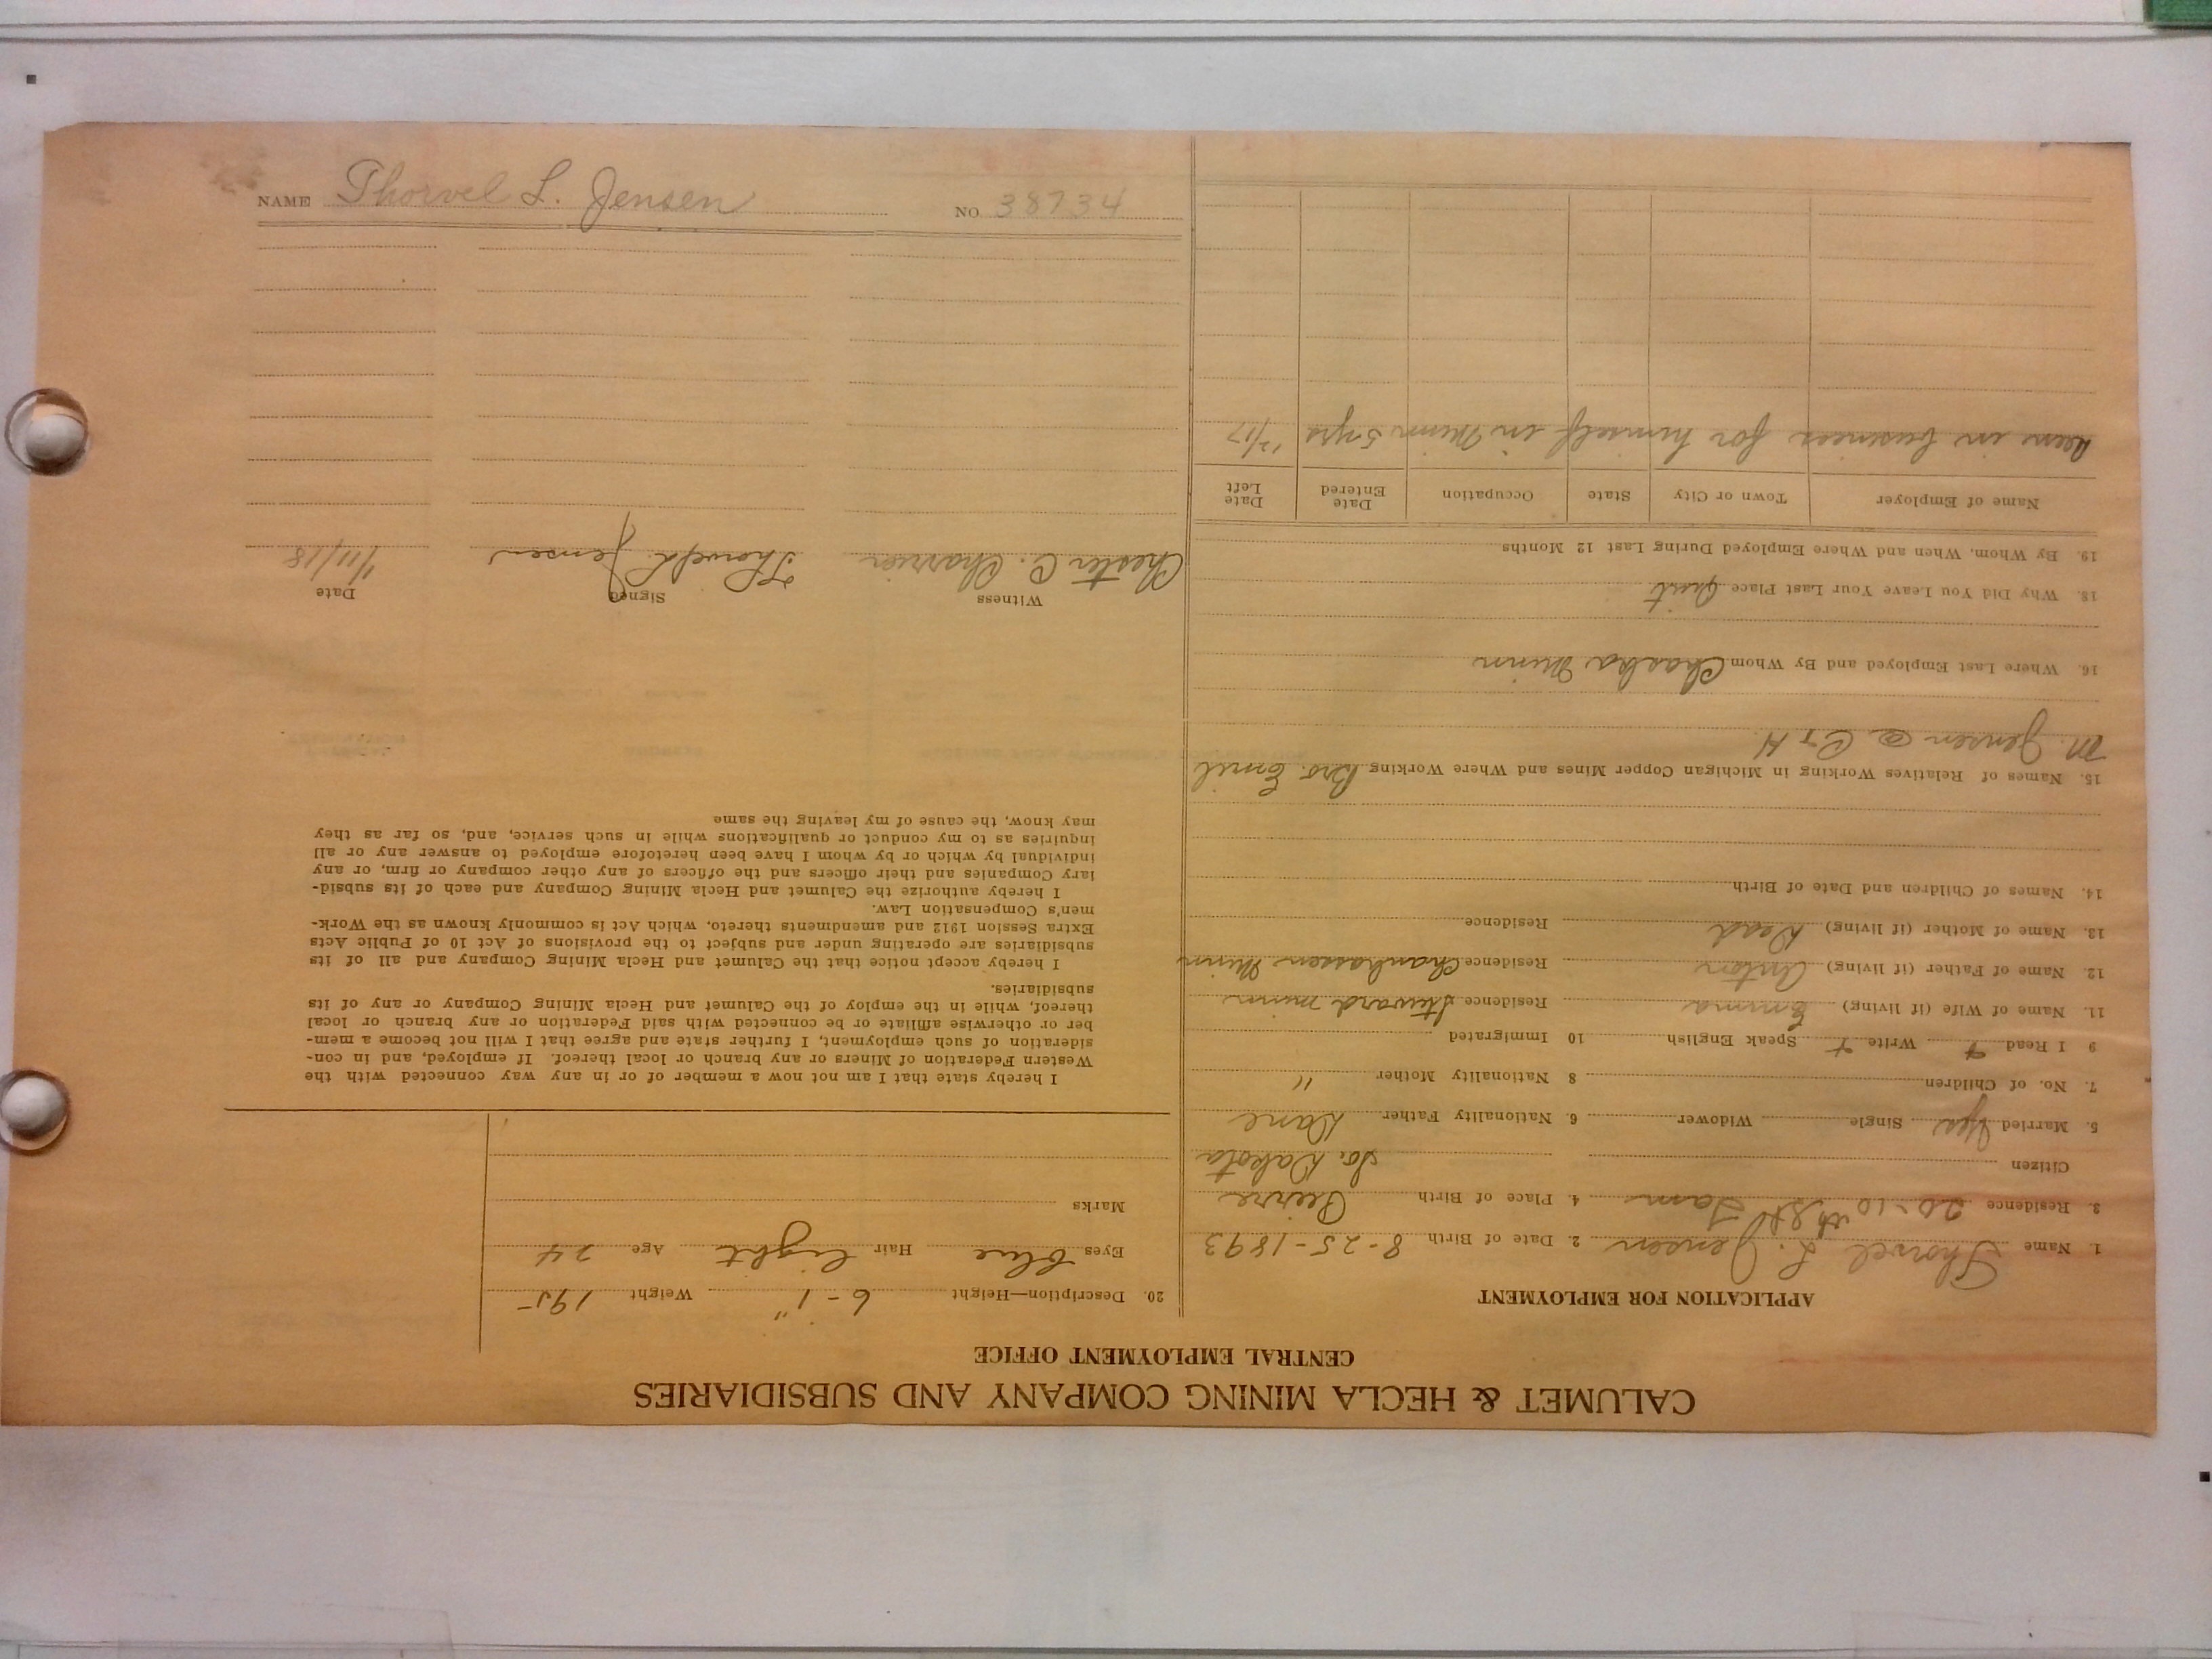 CALUMET & HECLA MINING COMPANY AND SUBSIDIARIES
CENTRAL EMPLOYMENT OFFICE
APPLICATION FOR EMPLOYMENT
1. Name Thorvel L. Jensen 2. Date of Birth 8-25-1893
3. Residence 20-10th St Lam 4. Place of Birth Peirre
Citizen So. Dakota
5. Married Yes Single Widower 6. Nationality Father Dane
7. No. of Children 8 Nationality Mother "
9 I Read + Write + Speak English 10 Immigrated
11. Name of Wife (if living) Emma Residence Steward Minn
12. Name of Father (if living) Anton Residence Chanhassen Minn
13. Name of Mother (if living) Dead Residence
14. Names of Children and Date of Birth
15. Names of Relatives Working in Michigan Copper Mines and Where Working Bro. Emil
M. Jensen @ C & H
16. Where Last Employed and By Whom Chaska Minn
18. Why Did You Leave Your Last Place Quit
19. By Whom, When and Where Employed During Last 12 Months
Name of Employer Town or City State Occupation Date Entered Date Left
Been in business for himself in Minn 5 yrs 12/17
20. Description—Height 6-1" Weight 195
Eyes blue Hair light Age 24
Marks
I hereby state that I am not now a member of or in any way connected with the
Western Federation of Miners or any branch or local thereof. If employed, and in con-
sideration of such employment, I further state and agree that I will not become a mem-
ber or otherwise affiliate or be connected with said Federation or any branch or local
thereof, while in the employ of the Calumet and Hecla Mining Company or any of its
subsidiaries.
I hereby accept notice that the Calumet and Hecla Mining Company and all of its
subsidiaries are operating under and subject to the provisions of Act 10 of Public Acts
Extra Session 1912 and amendments thereto, which Act is commonly known as the Work-
men's Compensation Law.
I hereby authorize the Calumet and Hecla Mining Company and each of its subsid-
iary Companies and their officers and the officers of any other company or firm, or any
individual by which or by whom I have been heretofore employed to answer any or all
inquiries as to my conduct or qualifications while in such service, and, so far as they
may know, the cause of my leaving the same
Witness Signed Date
Chester C. Charrier Thorvel L. Jensen 1/11/18
NAME Thorvel L. Jensen NO 38734